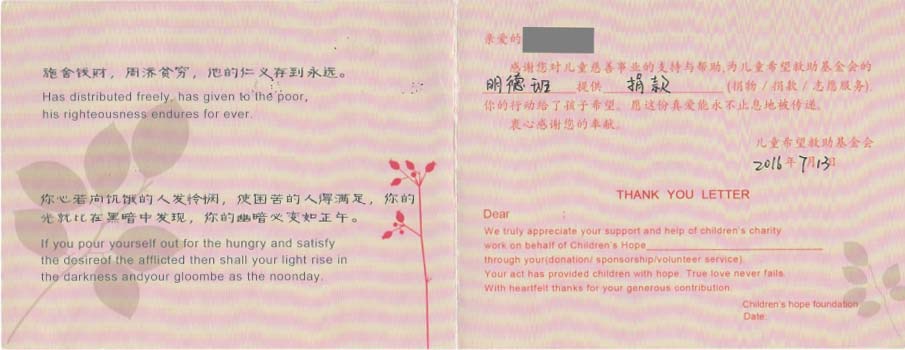 施舍钱财，周济贫穷，他的仁义存到永远。
Has distributed freely, has given to the poor,
his righteousness endures for ever.
你心若向饥饿的人发怜悯，使困苦的人得满足，你的
光就必在黑暗中发现，你的幽暗必变如正午。
If you pour yourself out for the hungry and satisfy
the desireof the afflicted then shall your light rise in
the darkness andyour gloombe as the noonday.
亲爱的
感谢您对儿童慈善事业的支持与帮助,为儿童希望救助基金会的
明德班 提供 捐款 (捐物 / 捐款 / 志愿服务).
你的行动给了孩子希望。愿这份真爱能永不止息地被传递。
衷心感谢您的奉献。
儿童希望救助基金会
2016年7月13日
THANK YOU LETTER
Dear :
We truly appreciate your support and help of children's charity
work on behalf of Children's Hope
through your(donation/ sponsorship/volunteer service).
Your act has provided children with hope. True love never fails.
With heartfelt thanks for your generous contribution.
Children's hope foundation
Date: